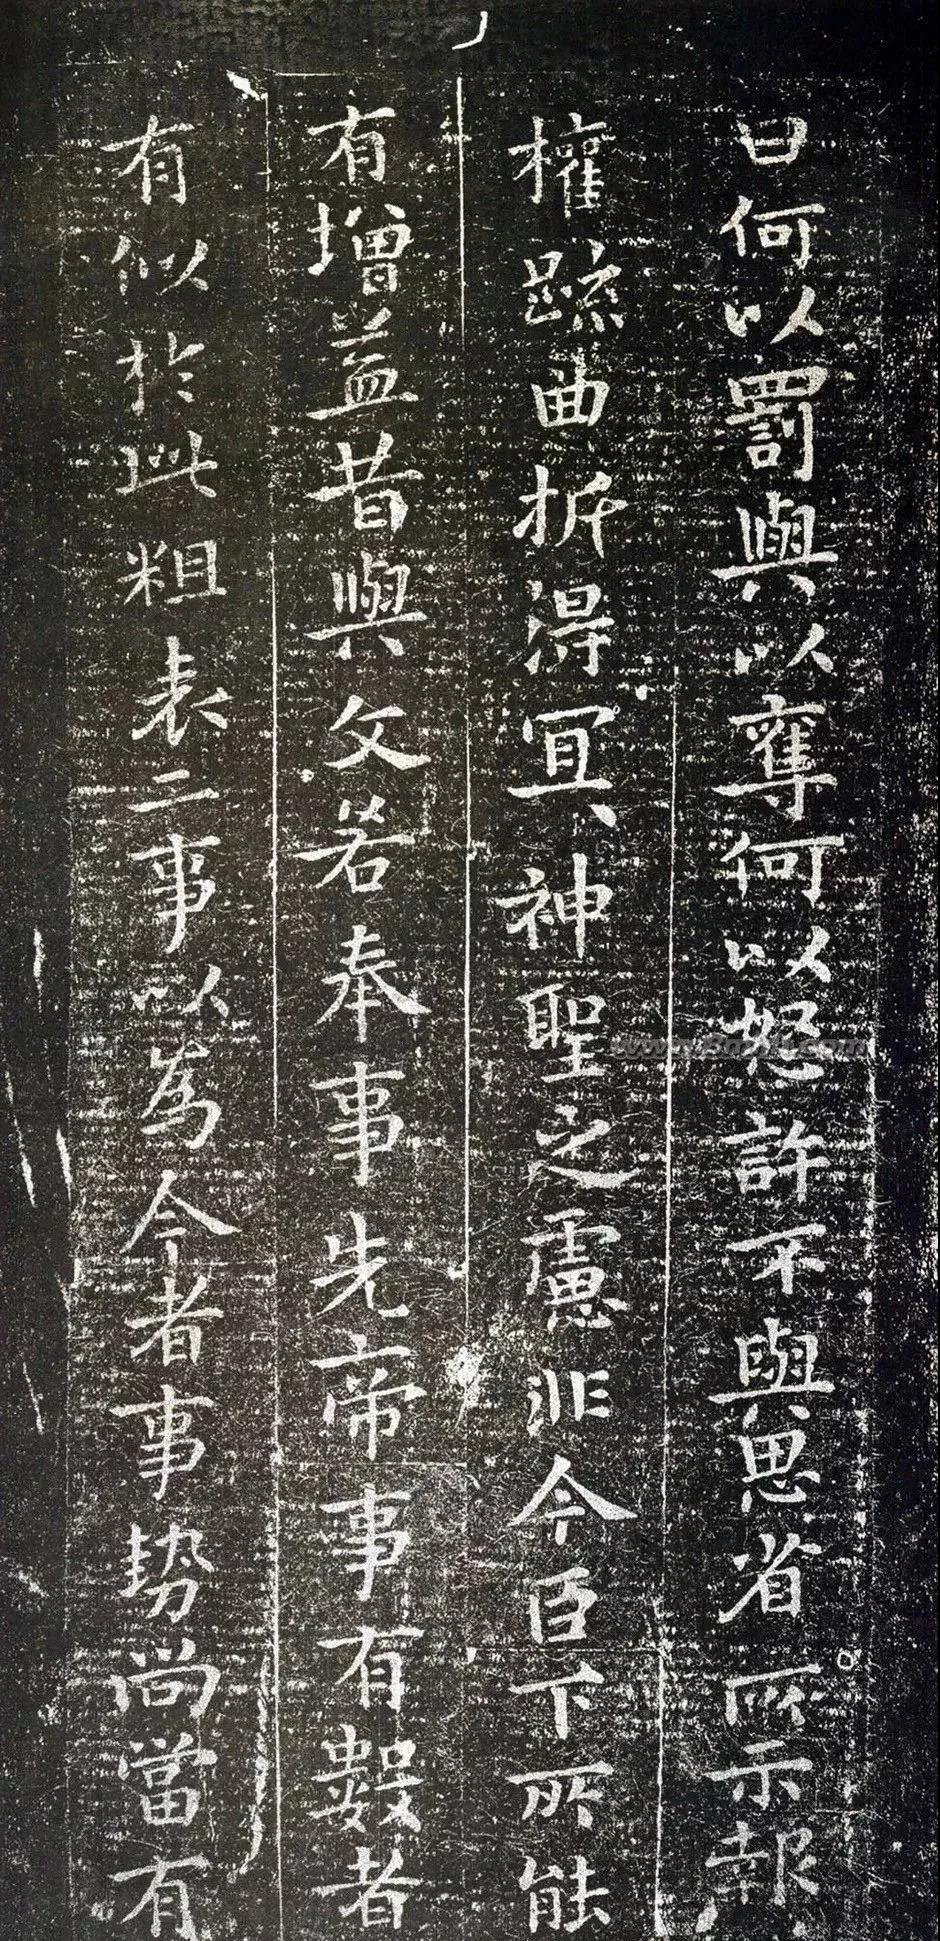 曰何以罰與以奪何以怒許不與思省所示報
權踈曲折得宜神聖之慮非今臣下所能
有增益昔與文若奉事先帝事有數者
有似於此粗表二事以為今者事勢尚當有